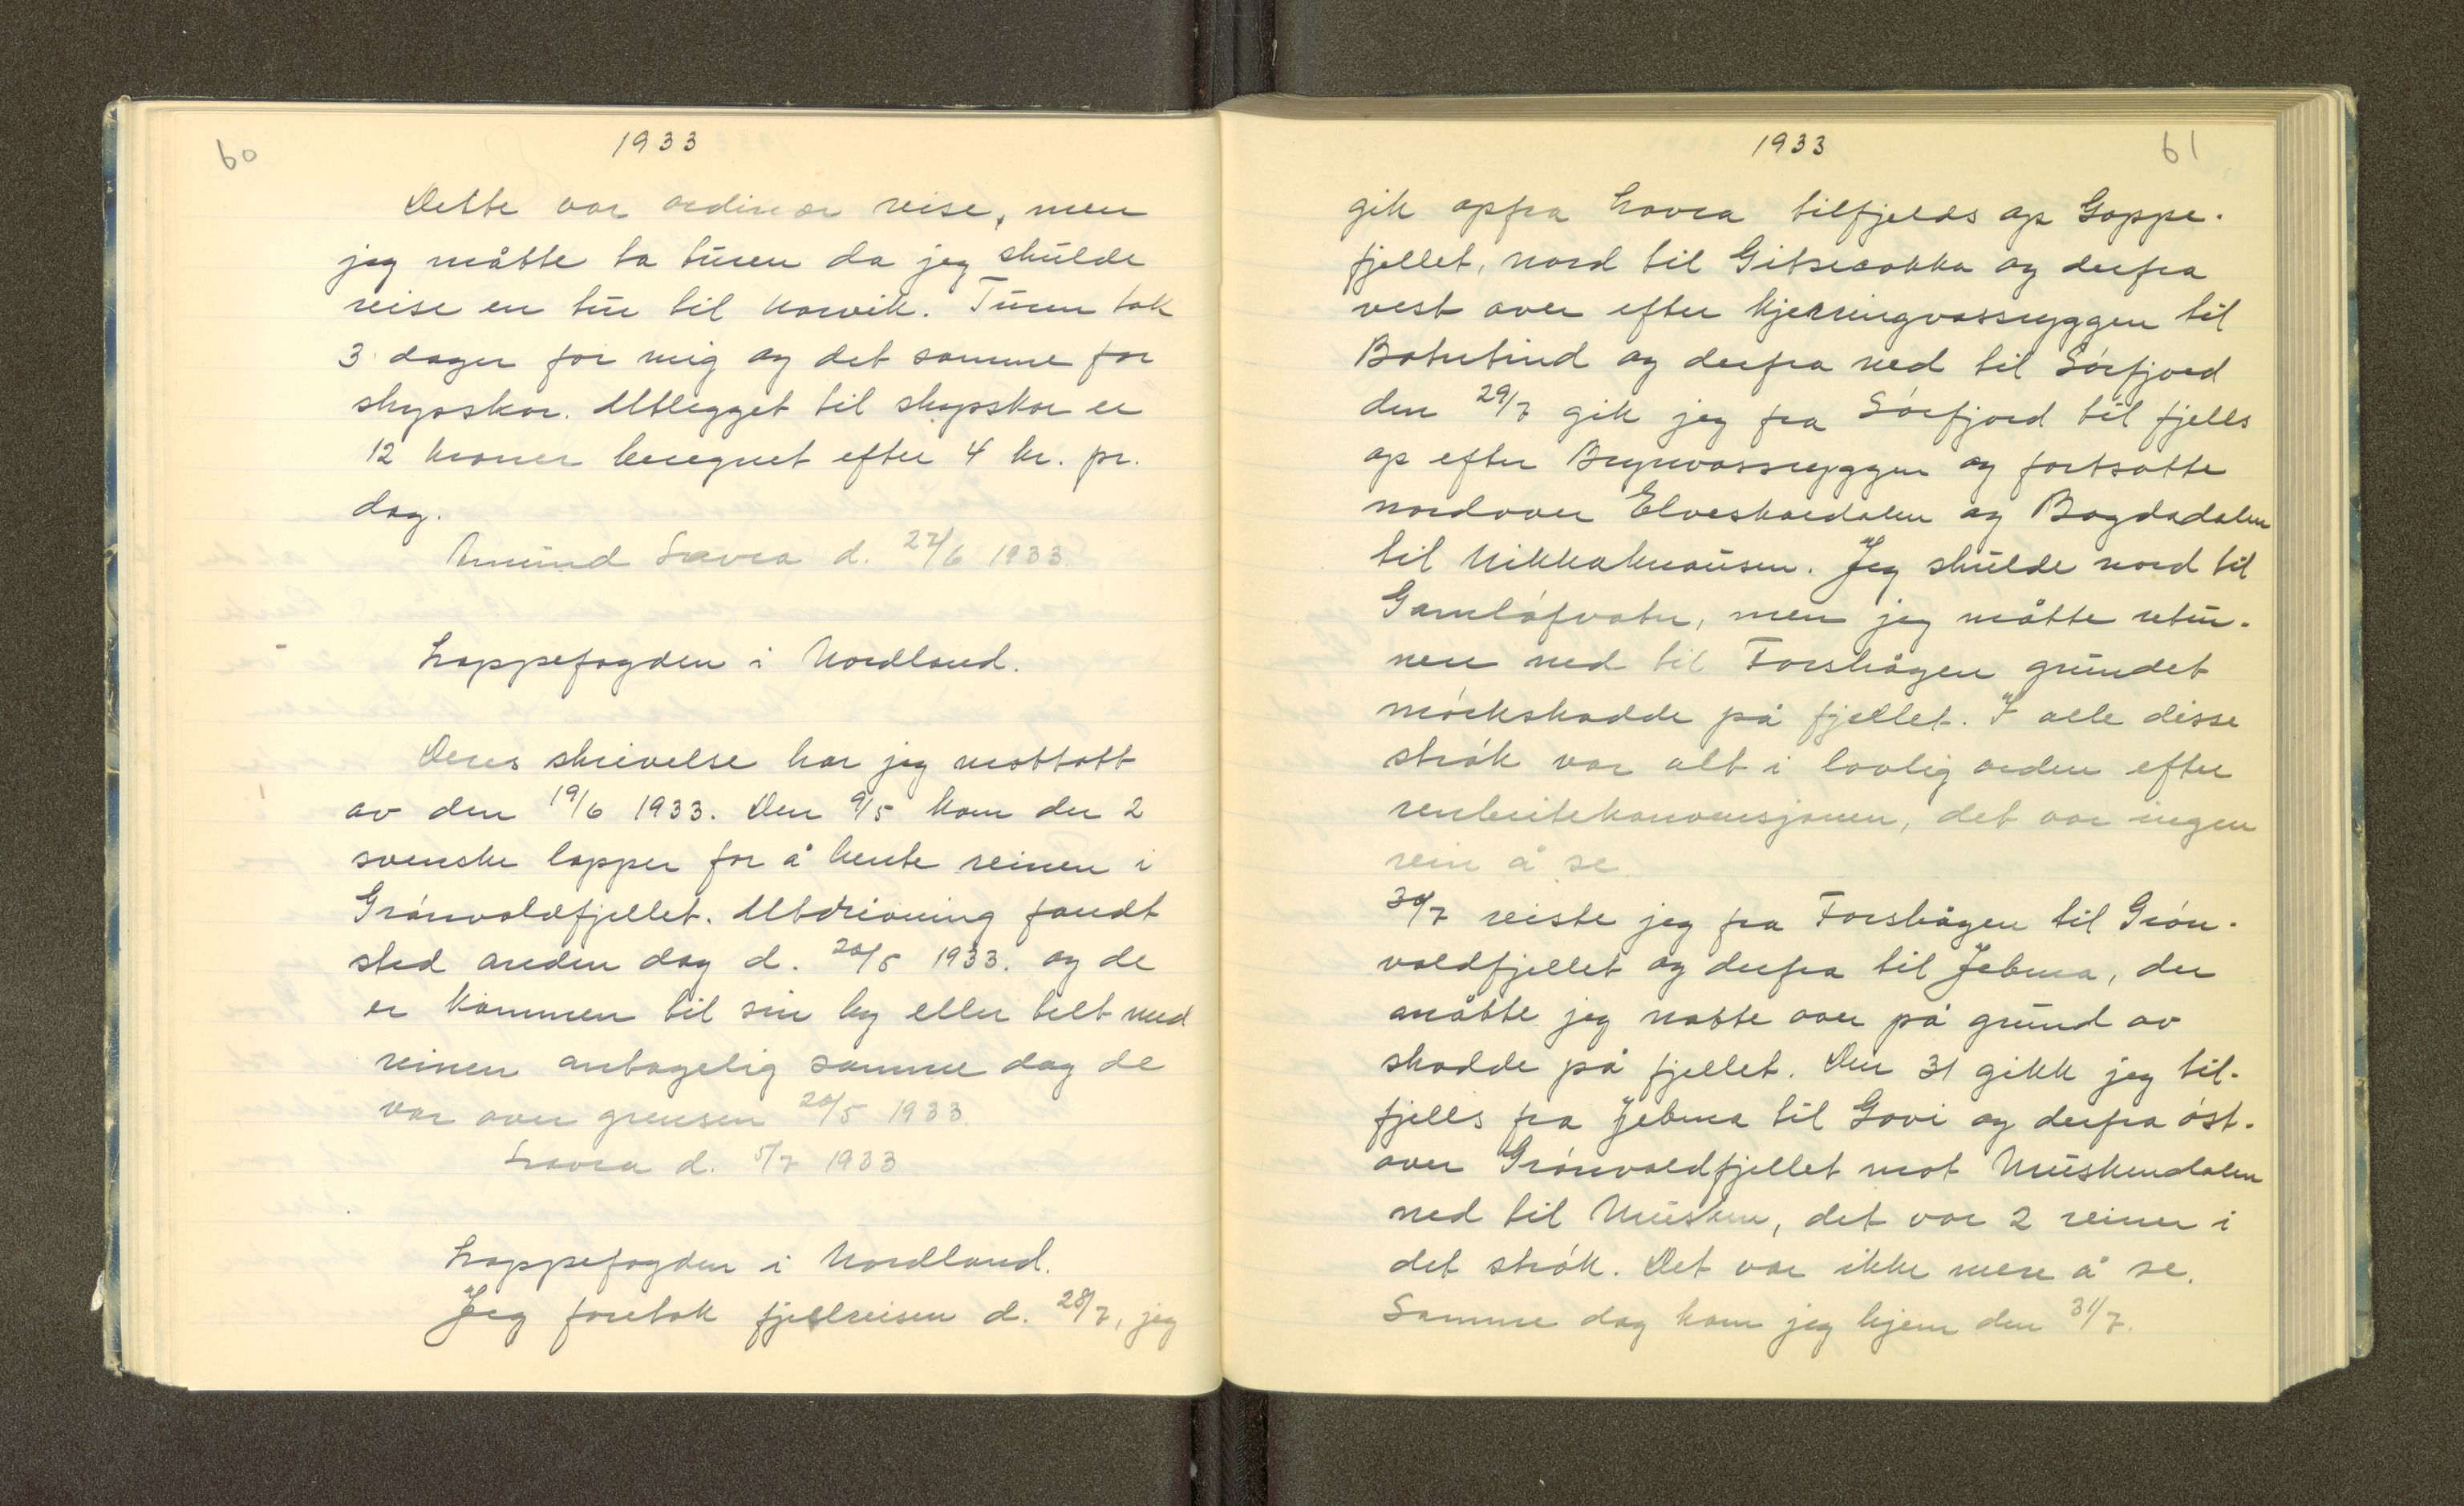 60
1933
Dette var ordinær reise, men
jeg måtte ta turen da jeg skulde
reise en tur til Narvik. Turen tok
3 dager for mig og det samme for
skysskar. Utlegget til skysskar er
12 kroner beregnet efter 4 kr. pr.
dag.
Amund Lavra d. 27/6 1933
Lappefogden i Nordland.
Deres skrivelse har jeg mottatt
av den 19/6 1933. Den 9/5 kom der 2
svenske lapper for å hente reinen i
Grönvoldfjellet. Utdrivning fandt
sted anden dag d. 20/5 1933. og de
er kommen til sin by eller telt med
reinen antagelig samme dag de
var over grensen 20/5 1933.
Lavra d. 5/7 1933
Lappefogden i Nordland.
Jeg foretok fjellreisen d. 28/7, jeg
61
1933
gik opfra Lavra tilfjelds op Goppe-
fjellet, nord til Gitsecokka og derfra
vest over efter Kjerringvassryggen til
Botntind og derfra ned til Sörfjord
den 29/7 gik jeg fra Sörfjord til fjells
op efter Brynvassryggen og fortsatte
nordover Elveskardalen og Bogdadalen
til Nikkaknausen. Jeg skulde nord til
Gamlöfvatn, men jeg måtte retur-
nere ned til Forshågen grundet
mörkskodde på fjellet. I alle disse
strök var alt i lovlig orden efter
renbeitekonvensjonen, det var ingen
rein å se
30/7 reiste jeg fra Forshågen til Grön-
voldfjellet og derfra til Jebma, der
måtte jeg natte over på grund av
skodde på fjellet. Den 31 gikk jeg til-
fjells fra Jebma til Govi og derfra öst-
over Grönvoldfjellet mot Muskendalen
ned til Musken, det var 2 reiner i
det strök. Det var ikke mere å se.
Samme dag kom jeg hjem den 31/7.